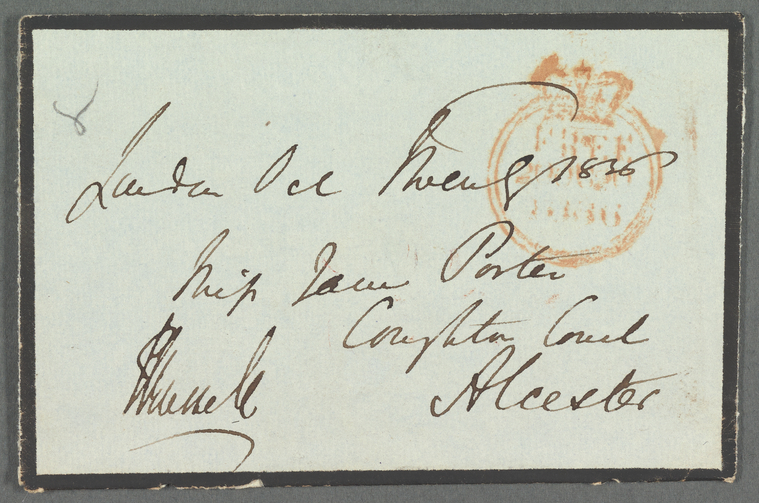 8
London Oct Twenty 1836
FREE
20 OC 20
1836
Miss Jane Porter
Coughton Court
Alcester